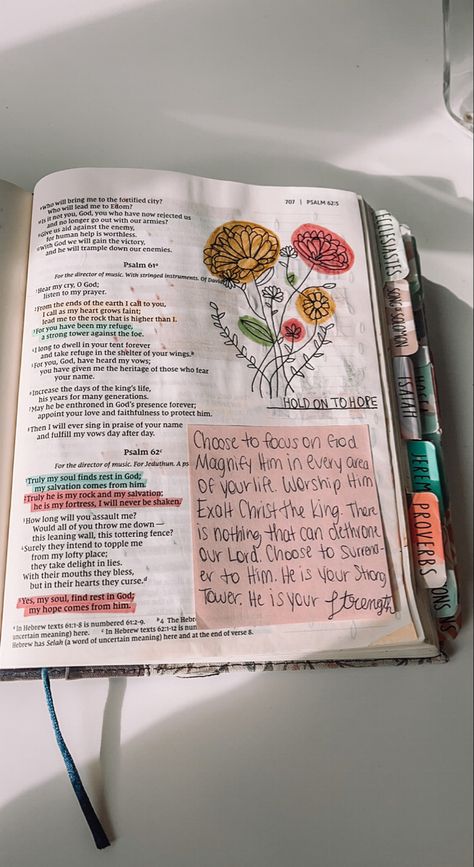 707 | PSALM 62:5
⁹Who will bring me to the fortified city?
Who will lead me to Edom?
¹⁰Is it not you, God, you who have now rejected us
and no longer go out with our armies?
¹¹Give us aid against the enemy,
for human help is worthless.
¹²With God we will gain the victory,
and he will trample down our enemies.
Psalm 61ᵃ
For the director of music. With stringed instruments. Of David
¹Hear my cry, O God;
listen to my prayer.
²From the ends of the earth I call to you,
I call as my heart grows faint;
lead me to the rock that is higher than I.
³For you have been my refuge,
a strong tower against the foe.
⁴I long to dwell in your tent forever
and take refuge in the shelter of your wings.ᵇ
⁵For you, God, have heard my vows;
you have given me the heritage of those who fear
your name.
⁶Increase the days of the king's life,
his years for many generations.
⁷May he be enthroned in God's presence forever;
appoint your love and faithfulness to protect him.
⁸Then I will ever sing in praise of your name
and fulfill my vows day after day.
Psalm 62ᶜ
For the director of music. For Jeduthun. A ps
¹Truly my soul finds rest in God;
my salvation comes from him.
²Truly he is my rock and my salvation;
he is my fortress, I will never be shaken.
³How long will you assault me?
Would all of you throw me down —
this leaning wall, this tottering fence?
⁴Surely they intend to topple me
from my lofty place;
they take delight in lies.
With their mouths they bless,
but in their hearts they curse.ᵈ
⁵Yes, my soul, find rest in God;
my hope comes from him.
ᵃ In Hebrew texts 61:1-8 is numbered 61:2-9. ᵇ4 The Hebr
uncertain meaning) here. ᶜ In Hebrew texts 62:1-12 is num
Hebrew has Selah (a word of uncertain meaning) here and at the end of verse 8.
HOLD ON TO HOPE
Choose to focus on God
Magnify Him in every area
of your life. Worship Him
Exalt Christ the King. There
is nothing that can dethrone
our Lord. Choose to Surrend-
er to Him. He is your Strong
Tower. He is your Strength
ECCLESIASTES
SONG & SOLOMON
ISAIAH
JEREM
PROVERBS